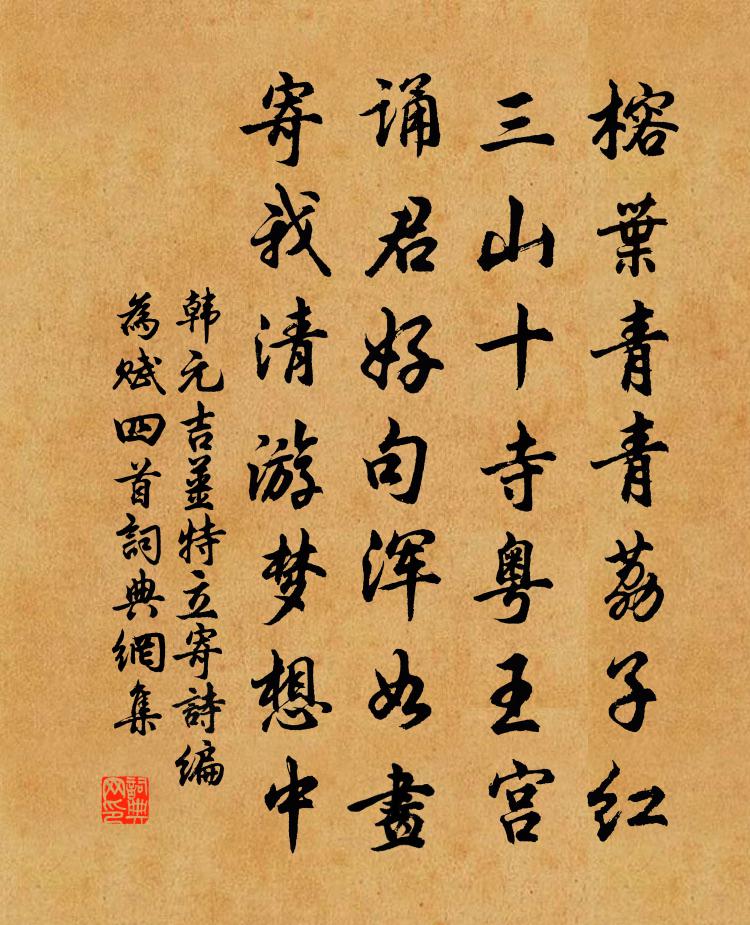 榕葉青青荔子红
三山十寺粤王宫
诵君好句浑如畫
寄我清游梦想中
韩元吉薑特立寄詩编
為赋四首詞典網集
詞典网印